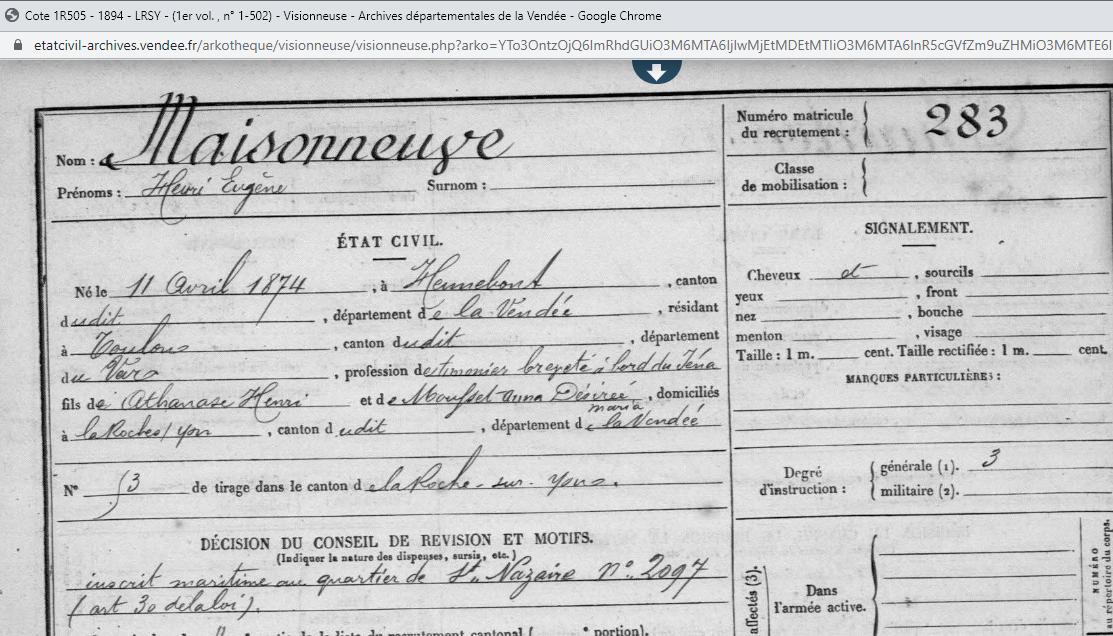 Cote 1R505 - 1894 - LRSY - (1er vol. , n° 1-502) - Visionneuse - Archives départementales de la Vendée - Google Chrome
etatcivil-archives.vendee.fr/arkotheque/visionneuse/visionneuse.php?arko=
Nom : Maisonneuve
Prénoms : Henri Eugène Surnom :
Numéro matricule du recrutement : 283
Classe de mobilisation :
ÉTAT CIVIL.
Né le 11 Avril 1874, à Hennebont, canton
dudit, département de la Vendée, résidant
à Toulon, canton dudit, département
du Var, profession de timonier breveté à bord du Iéna
fils de Athanase Henri et de Mousset Anna Désirée maria, domiciliés
à la Roche s/ yon, canton dudit, département de la Vendée
N° 53 de tirage dans le canton de la Roche-sur-yon.
DÉCISION DU CONSEIL DE REVISION ET MOTIFS.
(Indiquer la nature des dispenses, sursis, etc.)
inscrit maritime au quartier de St Nazaire n° 2097
(art 30 de la loi).
SIGNALEMENT.
Cheveux et, sourcils
yeux, front
nez, bouche
menton, visage
Taille : 1 m. cent. Taille rectifiée : 1 m. cent.
MARQUES PARTICULIÈRES :
Degré d'instruction : générale (1). 3
militaire (2).
affectés (3).
Dans l'armée active.
NUMÉRO
au répertoire du corps.